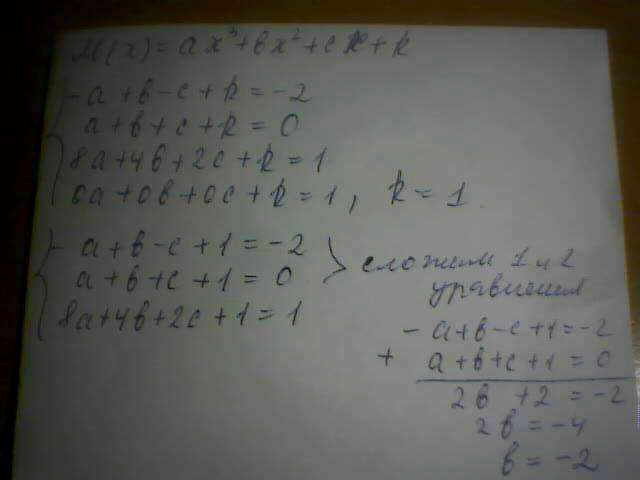 M(x) = ax³ + bx² + cx + k
-a + b - c + k = -2
a + b + c + k = 0
8a + 4b + 2c + k = 1
0a + 0b + 0c + k = 1, k = 1.
-a + b - c + 1 = -2
a + b + c + 1 = 0
8a + 4b + 2c + 1 = 1
сложим 1 и 2
уравнения
-a + b - c + 1 = -2
+ a + b + c + 1 = 0
2b + 2 = -2
2b = -4
b = -2